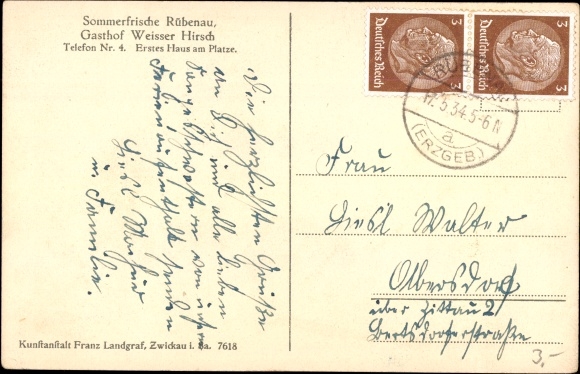 Sommerfrische Rübenau,
Gasthof Weisser Hirsch
Telefon Nr. 4. Erstes Haus am Platze.
Die herzlichsten Grüße
an Dich und alle lieben
Sangesschwestern von
Ferienaufenthalt senden
Liesl
u. Familie.
Kunstanstalt Franz Landgraf, Zwickau i. Sa. 7618
3 Deutsches Reich
3 Deutsches Reich
17.5.34.5-6N
a
(ERZGEB.)
Frau
Liesl Walter
Olbersdorf
über Zittau 2
Bertsdorferstraße
3,-